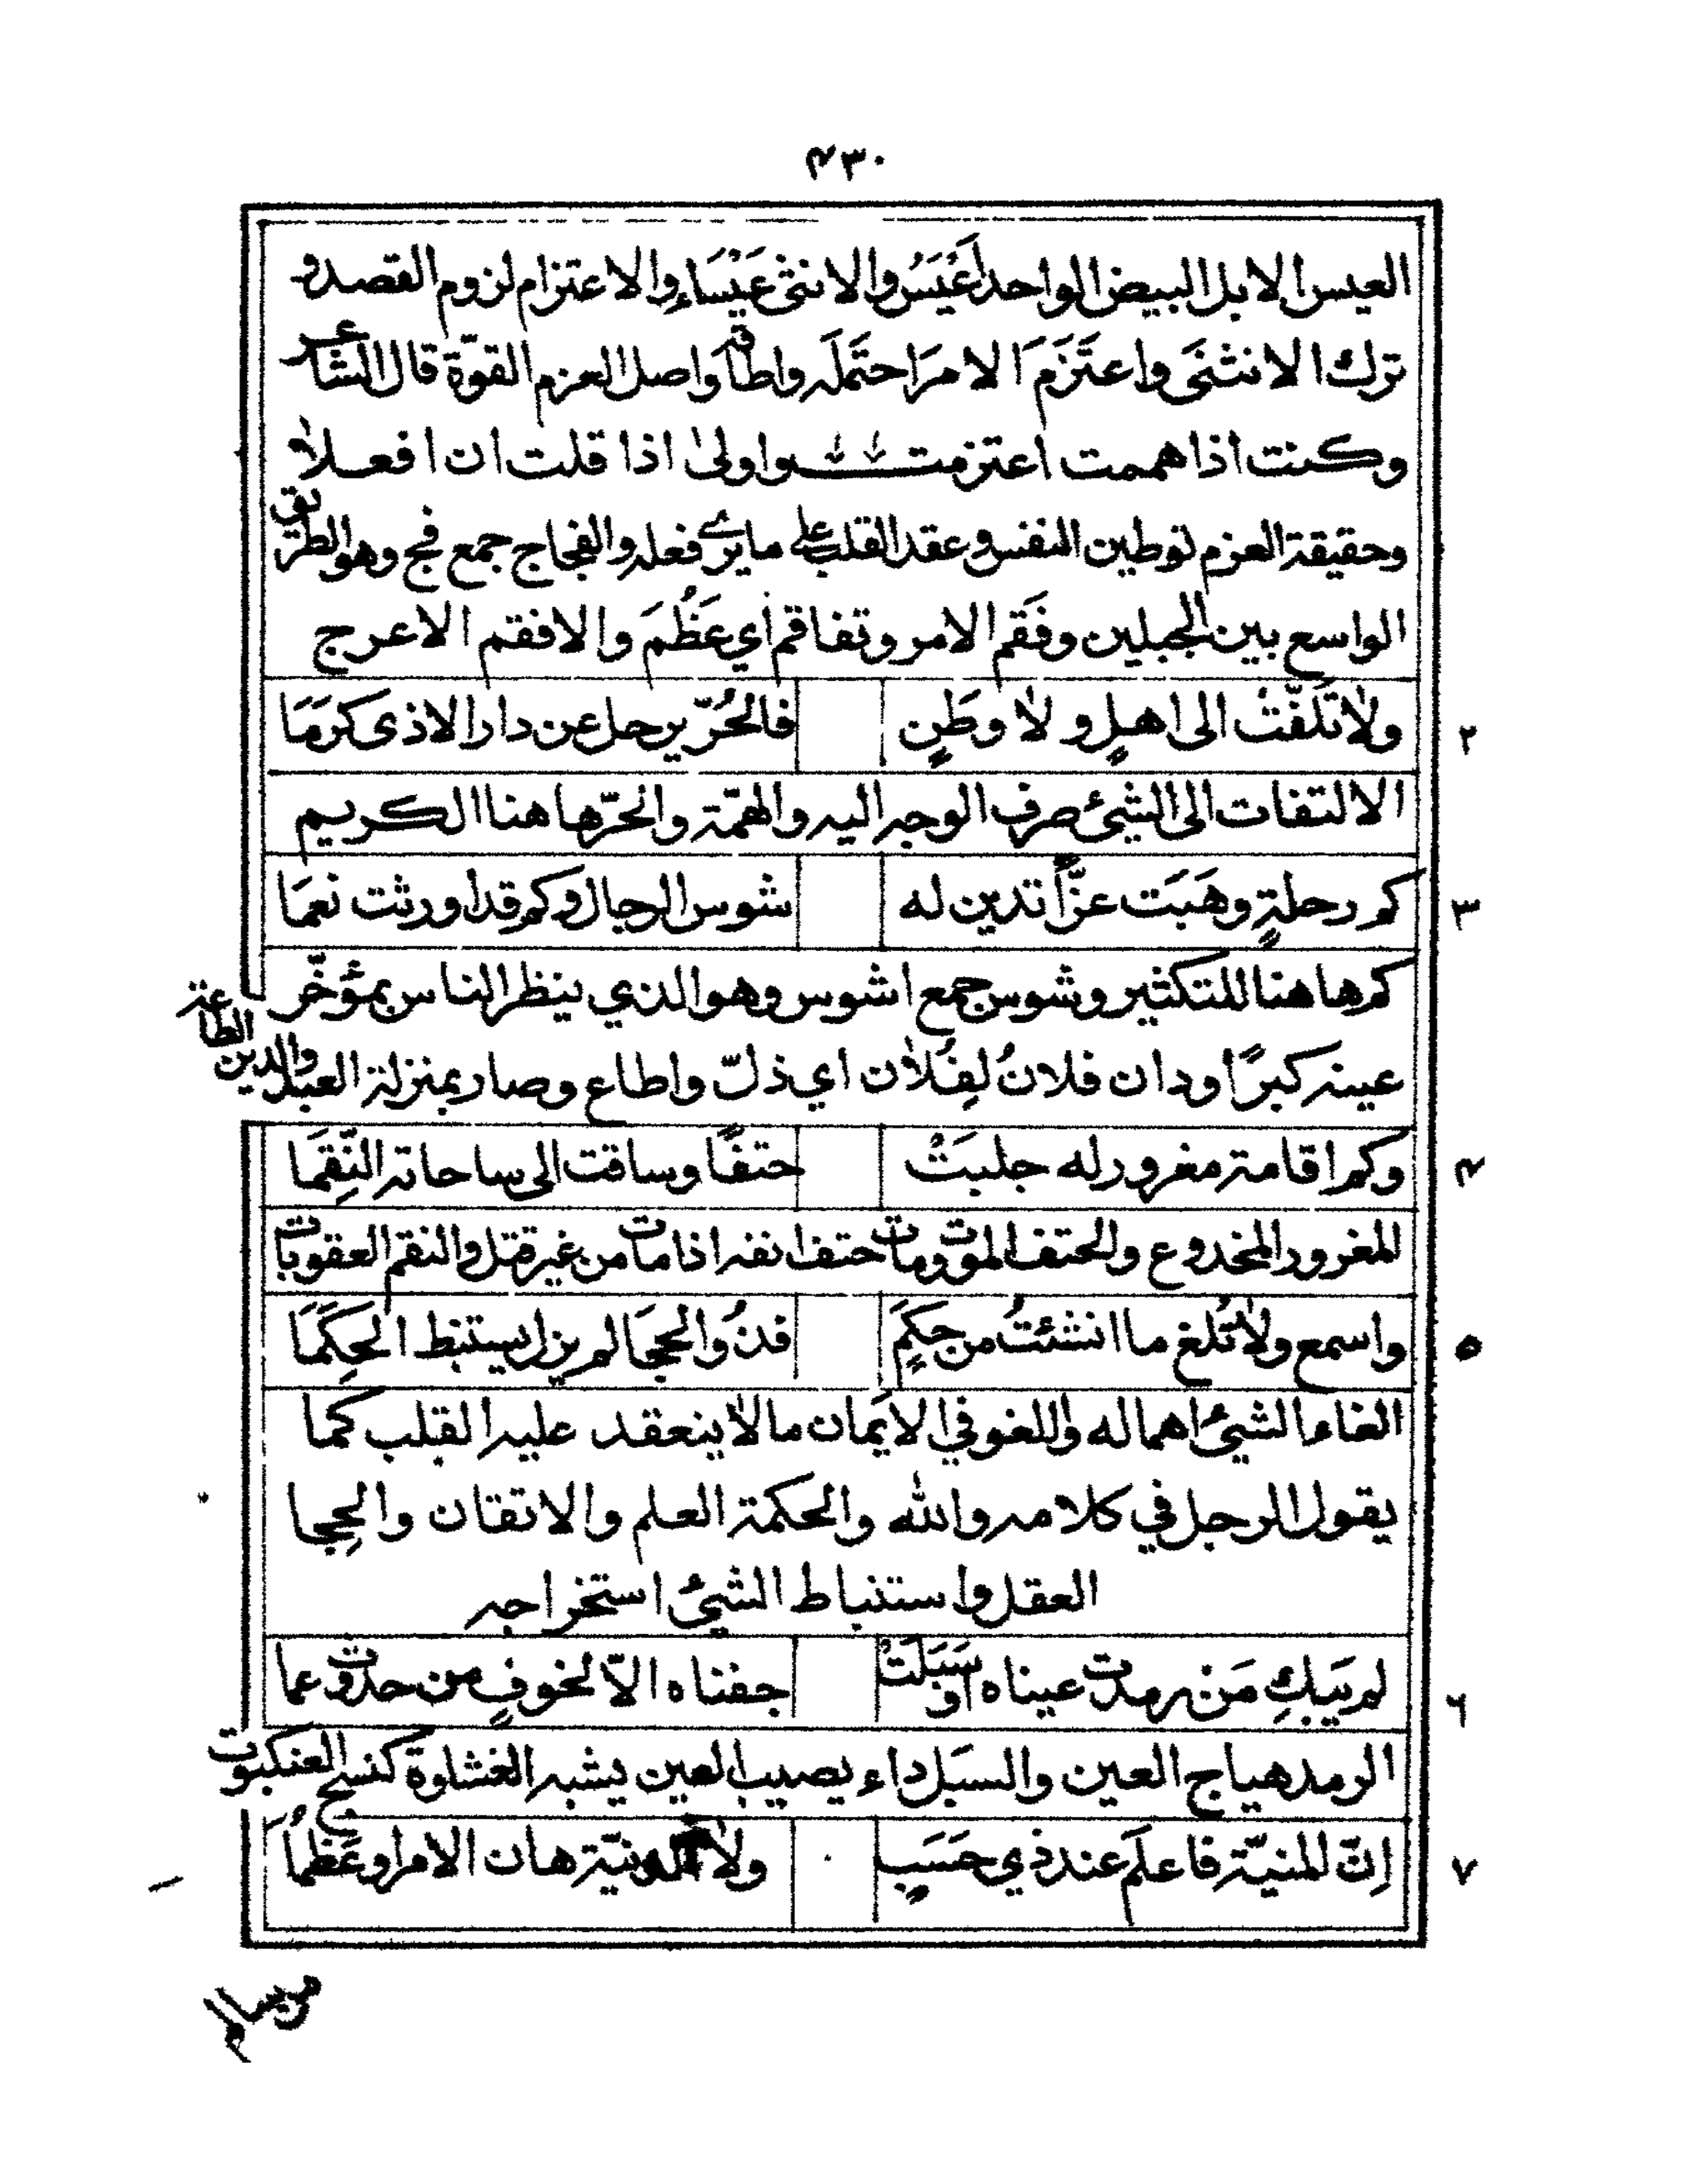 ۴۳۰
العيس الابل البيض الواحد اَعْيَسُ والانثى عَيْسَاءِ والاعتزام لزوم القصد و
ترك الانثنَى واعتَزَمَ الامرَ احتَمَلَه واطاقه واصل العزم القوّة قال الشاعر
وكنت اذا هممت اعتزمت واولىٰ اذا قلت ان افعلا
وحقيقة العزم توطين النفس و عقد القلب على ما يرى فعله والفجاج جمع فج وهو الطريق
الواسع بين الجبلين وفَقَم الامر وتفاقم اي عَظُمَ والافقم الاعرج
٢ ولا تَلَفَّتْ الى اهلٍ و لا وطَنٍ فالحُرّ يرحل عن دار الاذى كرَمَا
الالتفات الى الشيئ صرف الوجه اليه والهمّة والحرّ هاهنا الكريم
٣ كم رحلةٍ وهَبَت عزّاً تدين له شوس الرجال وكم قد اورثت نعمَا
كم هاهنا للتكثير وشوس جمع اشوس وهو الذي ينظر الناس بمؤخّر
عينه كبرًا ودان فلانُ لِفُلان اي ذلّ واطاع وصار بمنزلة العبد والدين الطاعة
۴ وكم اقامة مغرور له جلبَتْ حتفًا وساقت الى ساحاته النِّقِمَا
المغرور المخدوع والحتف الموت ومات حتف انفه اذا مات من غير قتل والنقم العقوبات
٥ واسمع ولا تُلغ ما انشئتُ من حِكَمٍ فذُو الحجَا لم يزل يستنبط الحِكَمَا
الغاء الشيئ اهماله واللغو في الايَمان ما لا ينعقد عليه القلب كما
يقول الرجل في كلامه والله والحكمة العلم والاتقان والحِجا
العقل واستنباط الشيئ استخراجه
٦ لم يَبكِ مَنْ رمدت عيناه او سَبَلَتْ جفناه الاّ لخوفٍ من حدوث عما
الرمد هياج العين والسبَل داء يصيب العين يشبه الغشاوة كنسج العنكبوت
٧ اِنّ المنيّة فاعلَم عند ذي حَسَبٍ ولا الدنيّة هان الامر او عَظُمَا